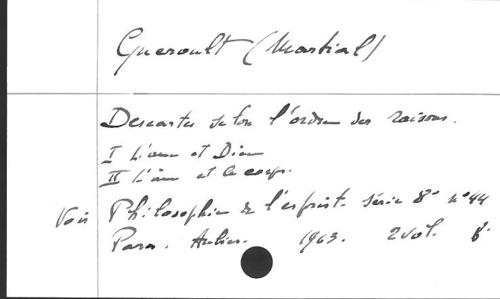 Gueroult (Martial)
Descartes selon l'ordre des raisons.
I L'âme et Dieu
II L'âme et le corps.
Voir Philosophie de l'esprit. série 8° n° 44
Paris. Aubier. 1963. 2 vol.